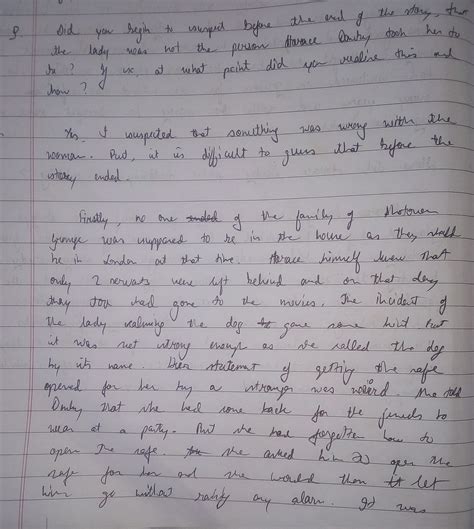 Q. Did you begin to suspect before the end of the story, that
the lady was not the person Horace Danby took her to
be? If so, at what point did you realise this and
how?
Yes, I suspected that something was wrong with the
woman. But, it is difficult to guess that before the
story ended.
Firstly, no one ended of the family of Shotover
Grange was supposed to be in the house as they would
be in London at that time. Horace himself knew that
only 2 servants were left behind and on that day
they too had gone to the movies. The incident of
the lady calming the dog to gave some hint but
it was not strong enough as she called the dog
by its name. Her statement of getting the safe
opened for her by a stranger was weird. She told
Danby that she had come back for the jewels to
wear at a party. But she have forgotten how to
open the safe. She asked him to open the
safe for her and she would then let
him go without any alarm. It was